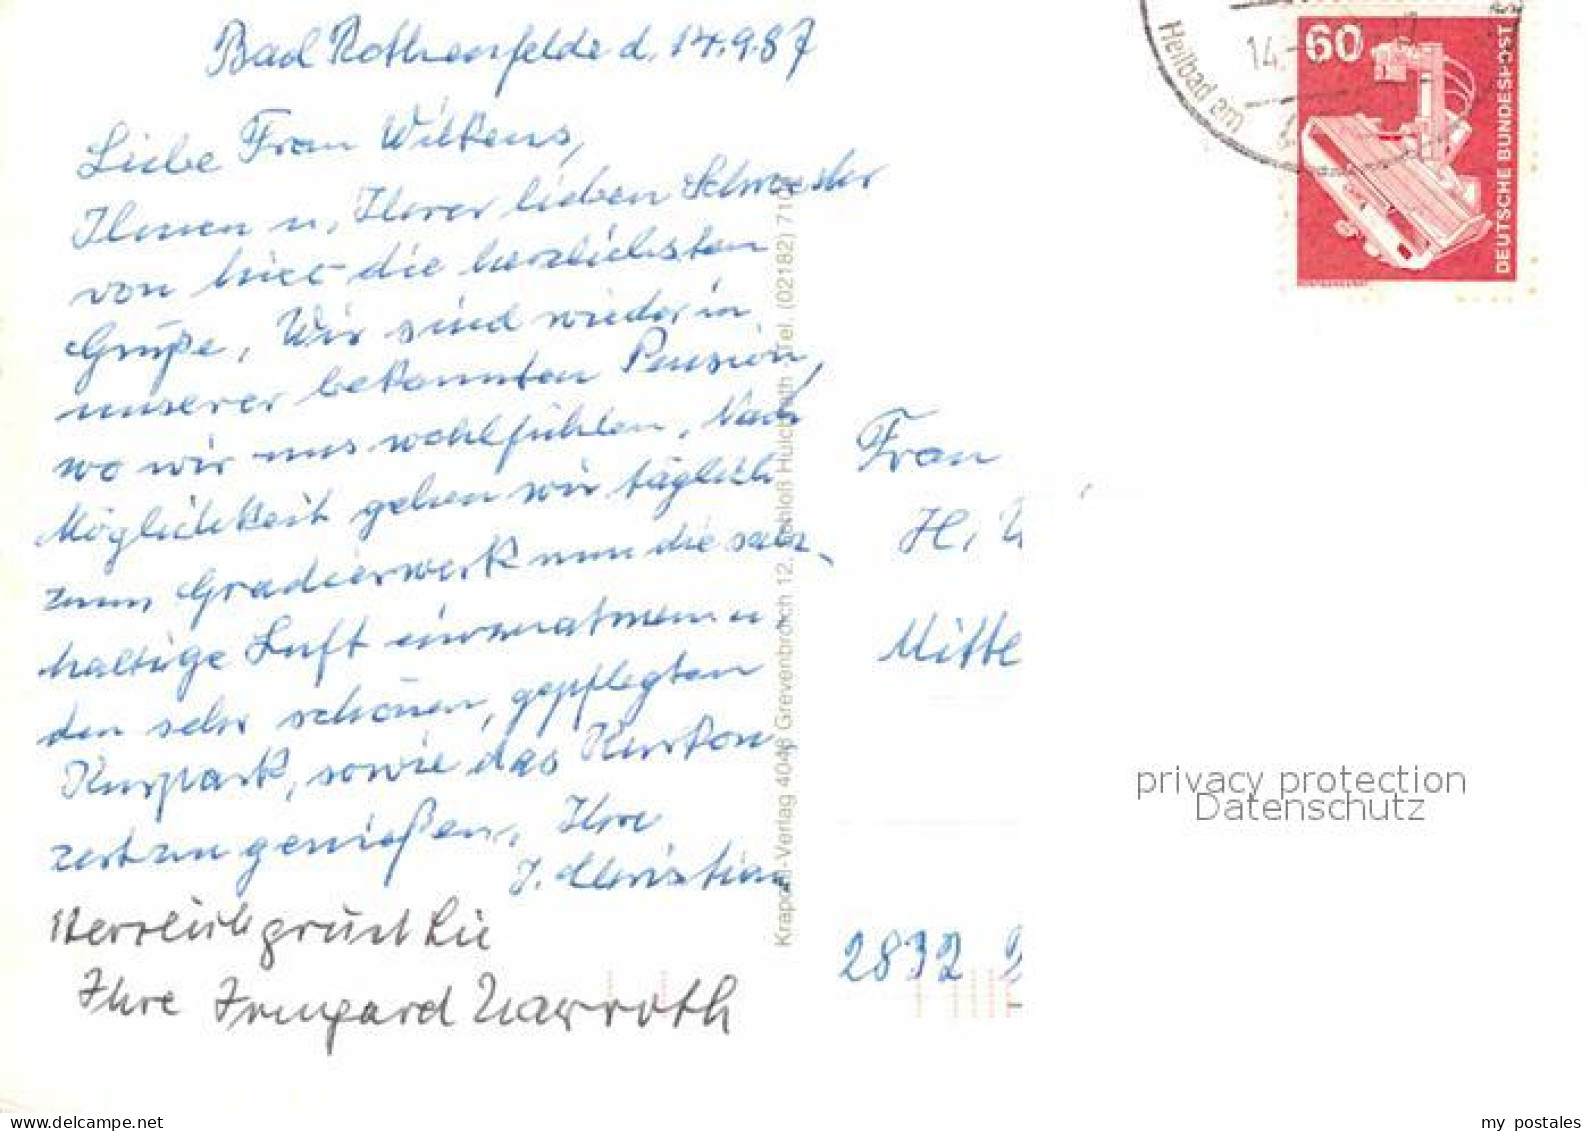 Bad Rothenfelde d. 14.9.87
Liebe Frau Wilkens,
Ihnen u. Ihrer lieben Schwester
von hier die herzlichsten
Grüße, Wir sind wieder in
unserer bekannten Pension,
wo wir uns wohlfühlen. Nach
Möglichkeit gehen wir täglich
zum Gradierwerk um die salz-
haltige Luft einzuatmen u.
den sehr schönen, gepflegten
Kurpark, sowie das Kurkon
zert zu genießen. Ihre
J. Christian
Herzlich grüßt Sie
Ihre Irmgard
Krapohl-Verlag 4048 Grevenbroich 12, Schloß Hülchrath · Tel. (02182) 71
Heilbad am
14.
60
DEUTSCHE BUNDESPOST
Frau
H.
Mitte
2832
privacy protection
Datenschutz
my_postales